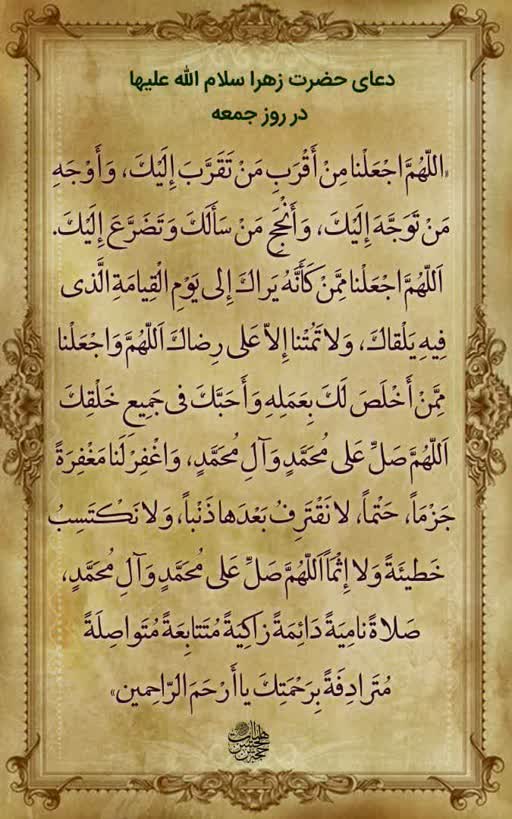 دعای حضرت زهرا سلام الله علیها
در روز جمعه
«اَللّهُمَّ اجْعَلْنا مِنْ أَقْرَبِ مَنْ تَقَرَّبَ إِلَيْكَ، وَأَوْجَهِ
مَنْ تَوَجَّهَ إِلَيْكَ، وَأَنْجَحِ مَنْ سَأَلَكَ وَتَضَرَّعَ إِلَيْكَ.
اَللّهُمَّ اجْعَلْنا مِمَّنْ كَأَنَّهُ يَراكَ إِلى يَوْمِ الْقِيامَةِ الَّذى
فِيهِ يَلْقاكَ، وَلا تُمِتْنا إِلاّ عَلى رِضاكَ اَللّهُمَّ وَاجْعَلْنا
مِمَّنْ أَخْلَصَ لَكَ بِعَمَلِهِ وَأَحَبَّكَ فى جَمِيعِ خَلْقِكَ
اَللّهُمَّ صَلِّ عَلى مُحَمَّدٍ وَآلِ مُحَمَّدٍ، وَاغْفِرْ لَنا مَغْفِرَةً
جَزْماً، حَتْماً، لا نَقْتَرِفُ بَعْدَها ذَنْباً، وَلا نَكْتَسِبُ
خَطيئَةً وَلا إِثْماً اَللّهُمَّ صَلِّ عَلى مُحَمَّدٍ وَآلِ مُحَمَّدٍ،
صَلاةً نامِيَةً دائِمَةً زاكِيَةً مُتَتابِعَةً مُتَواصِلَةً
مُتَرادِفَةً بِرَحْمَتِكَ يا أَرْحَمَ الرّاحِمين»